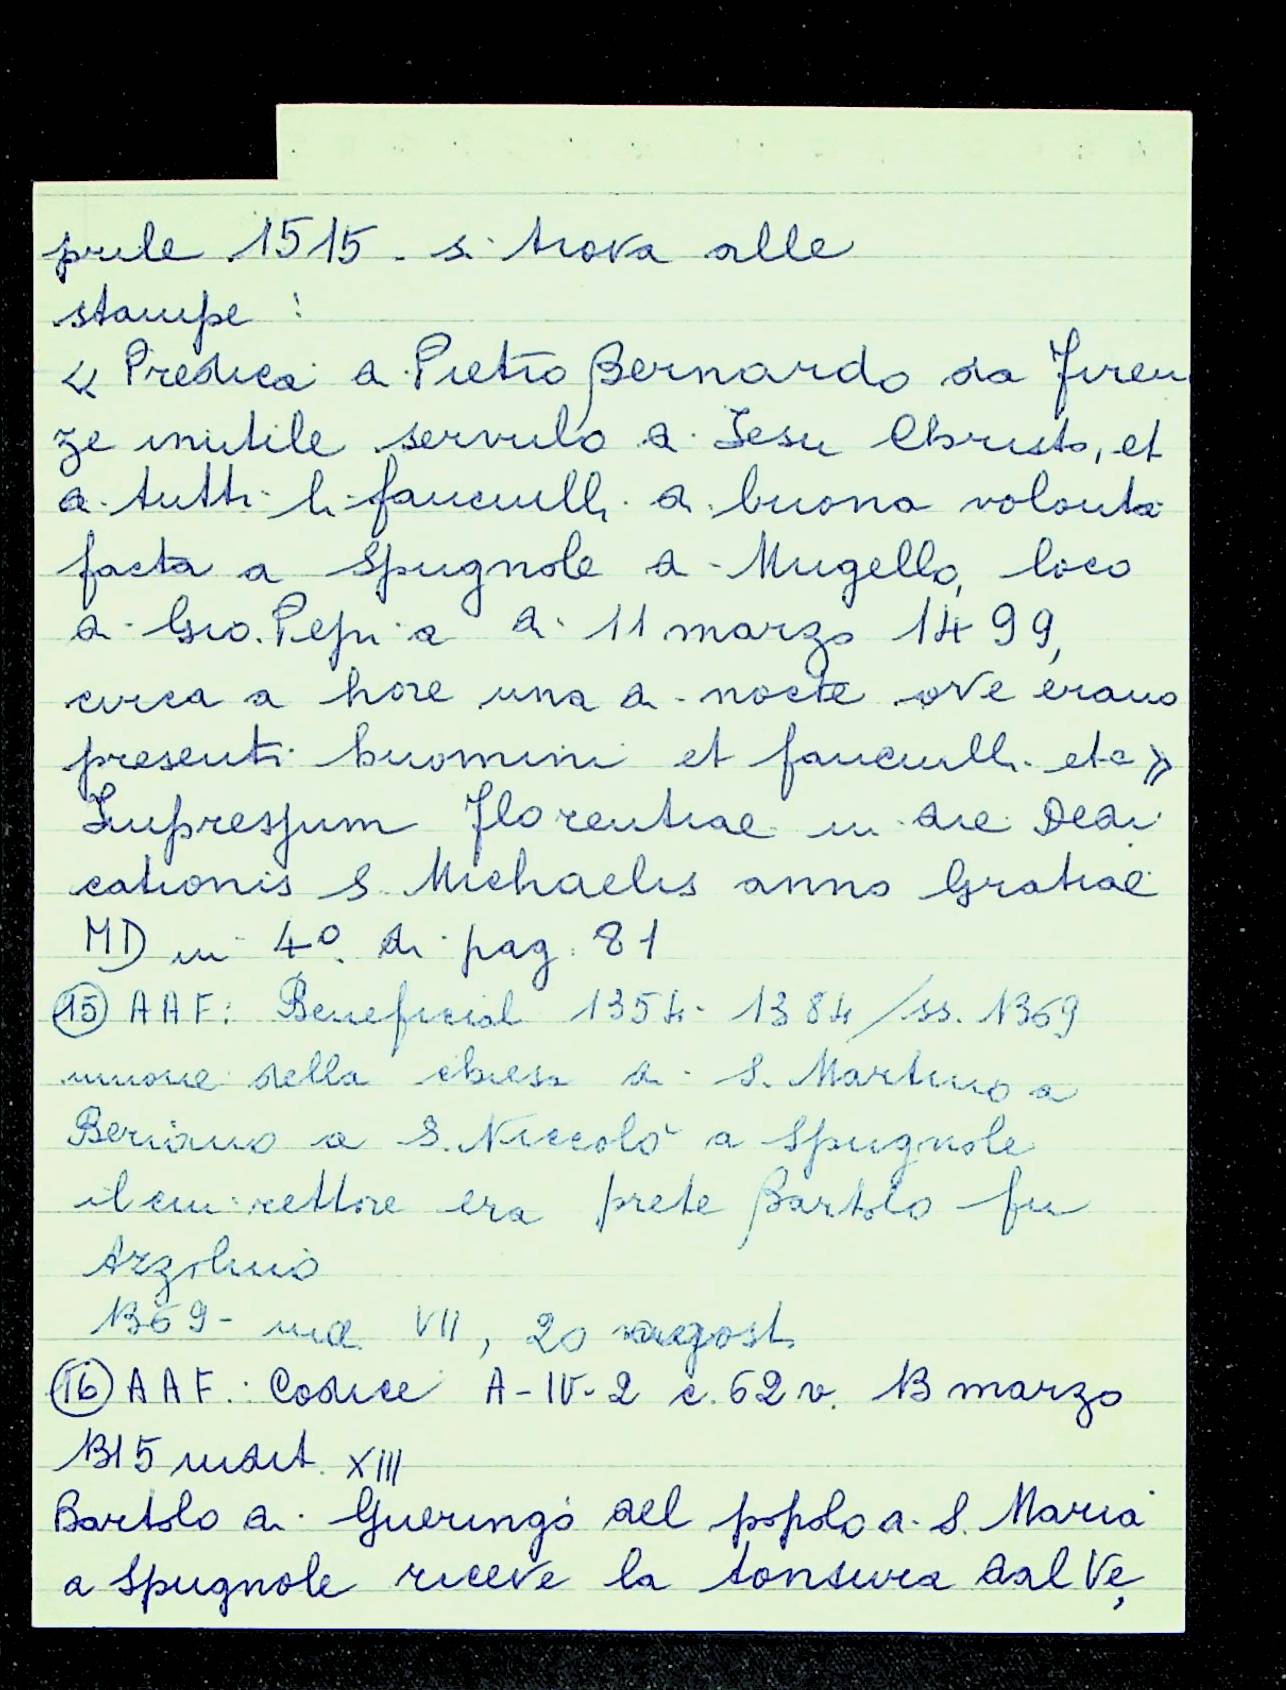 prile 1515. si trova alle
stampe:
« Predica di Pietro Bernardo da Firen
ze inutile servulo di Jesu Christo, et
di tutti li fanciulli di buona volontà
facta a Spugnole di Mugello, loco
di Gio. Pepi a di 11 marzo 1499,
circa a hore una di nocte ove erano
presenti huomini et fanciulli etc»
Impressum Florentiae in die Dedi
cationis S. Michaelis anno Gratiae
MD in 4º. di pag. 81
(15) AAF: Beneficiali 1354-1384/ss. 1369
unione della chiesa di S. Martino a
Beriano a S. Niccolò a Spugnole
il cui rettore era prete Bartolo fu
Azzolino
1369- ind. VII, 20 agosto
(16) AAF.: Codice A-IV-2 c.62v. 13 marzo
1315 indit. XIII
Bartolo di Gueringo del popolo di S. Maria
a Spugnole riceve la tonsura dal Ve,